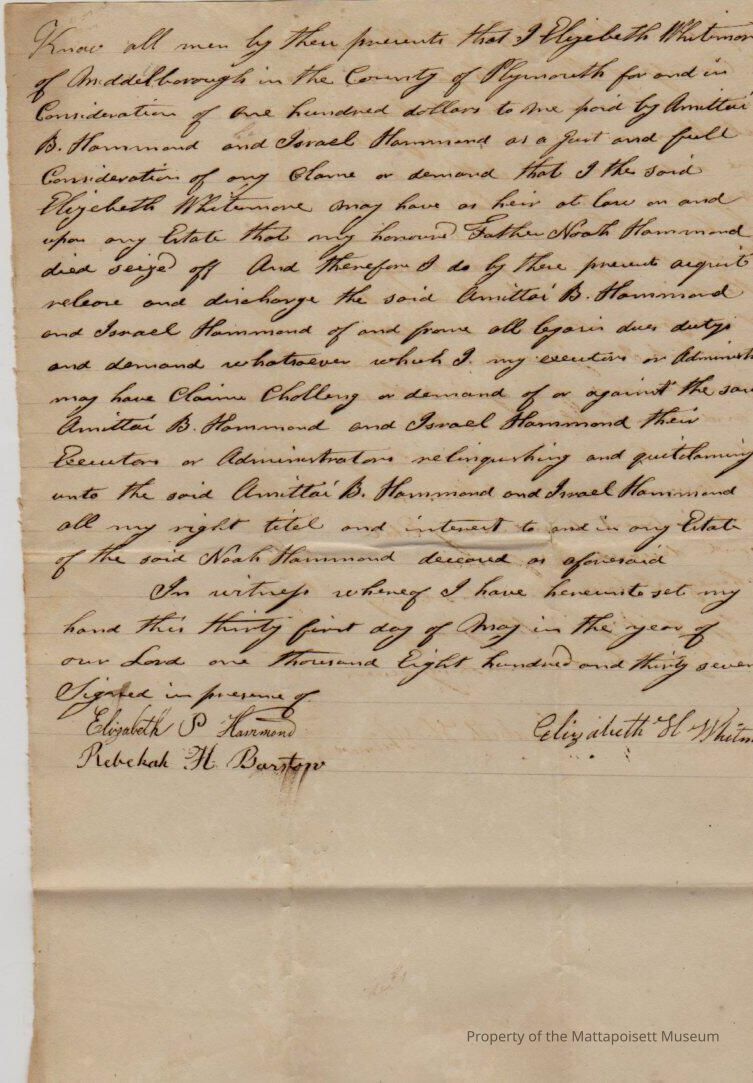 Know all men by these presents that I Elizebeth Whitmor
of Middelborough in the County of Plymouth for and in
Consideration of one hundred dollars to me paid by Amittai
B. Hammond and Israel Hammond as a Just and full
Consideration of any Clame or demand that I the said
Elizebeth Whitemore may have as heir at law on and
upon any Estate that my honoured Father Noah Hammond
died seized off And therefore I do by these presents acquit
release and discharge the said Amittai B. Hammond
and Israel Hammond of and from all dues dutys
and demand whatsoever which I my executors or Administ
may have Claime Challeng or demand of or against the sai
Amittai B. Hammond and Israel Hammond their
Executors or Administrators relinquishing and quitclaiming
unto the said Amittai B. Hammond and Israel Hammond
all my right titel and interest to and in any Estate
of the said Noah Hammond deceased as aforesaid
In witness whereof I have hereunto set my
hand this thirty first day of May in the year of
our Lord one thousand Eight hundred and thirty seven
Signed in presence of
Elizabeth P Hammond
Elizabeth H Whitm
Rebekah H Barstow
Property of the Mattapoisett Museum